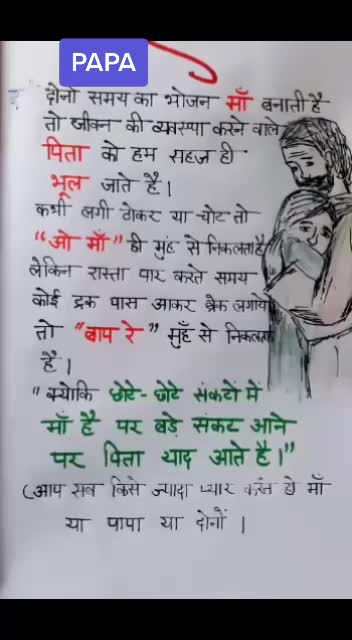 PAPA
दोनो समय का भोजन माँ बनाती है
तो जीवन की व्यवस्पा करने वाले
पिता को हम सहज ही
भूल जाते है।
कभी लगी ठोकर या चोट तो
"ओ माँ" ही मुंह से निकलता है
लेकिन रास्ता पार करते समय
कोई ट्रक पास आकर ब्रेक लगाये
तो "बाप रे" मुँह से निकलता
है।
"क्योकि छोटे-छोटे संकटों में
माँ है पर बड़े संकट आने
पर पिता याद आते है।"
(आप सब किसे ज्यादा प्यार करते हो माँ
या पापा या दोनों।